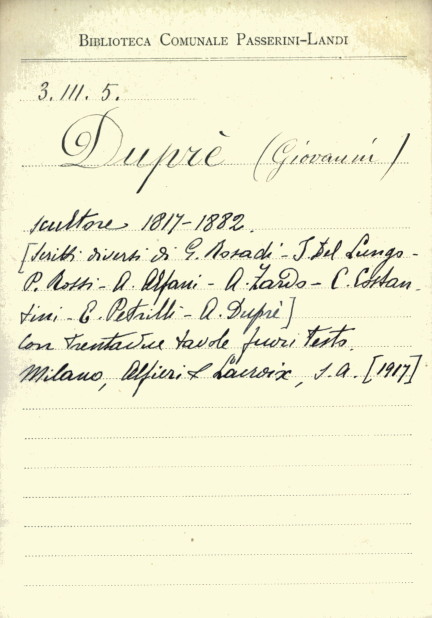 BIBLIOTECA COMUNALE PASSERINI-LANDI
3. III. 5.
Duprè (Giovanni)
scultore 1817-1882.
[Scritti diversi di G. Rosadi - I. Del Lungo -
P. Rossi - A. Alfani - A. Zardo - C. Costan-
tini - E. Petrilli - A. Duprè]
Con trentadue tavole fuori testo.
Milano, Alfieri & Lacroix, s. a. [1917]